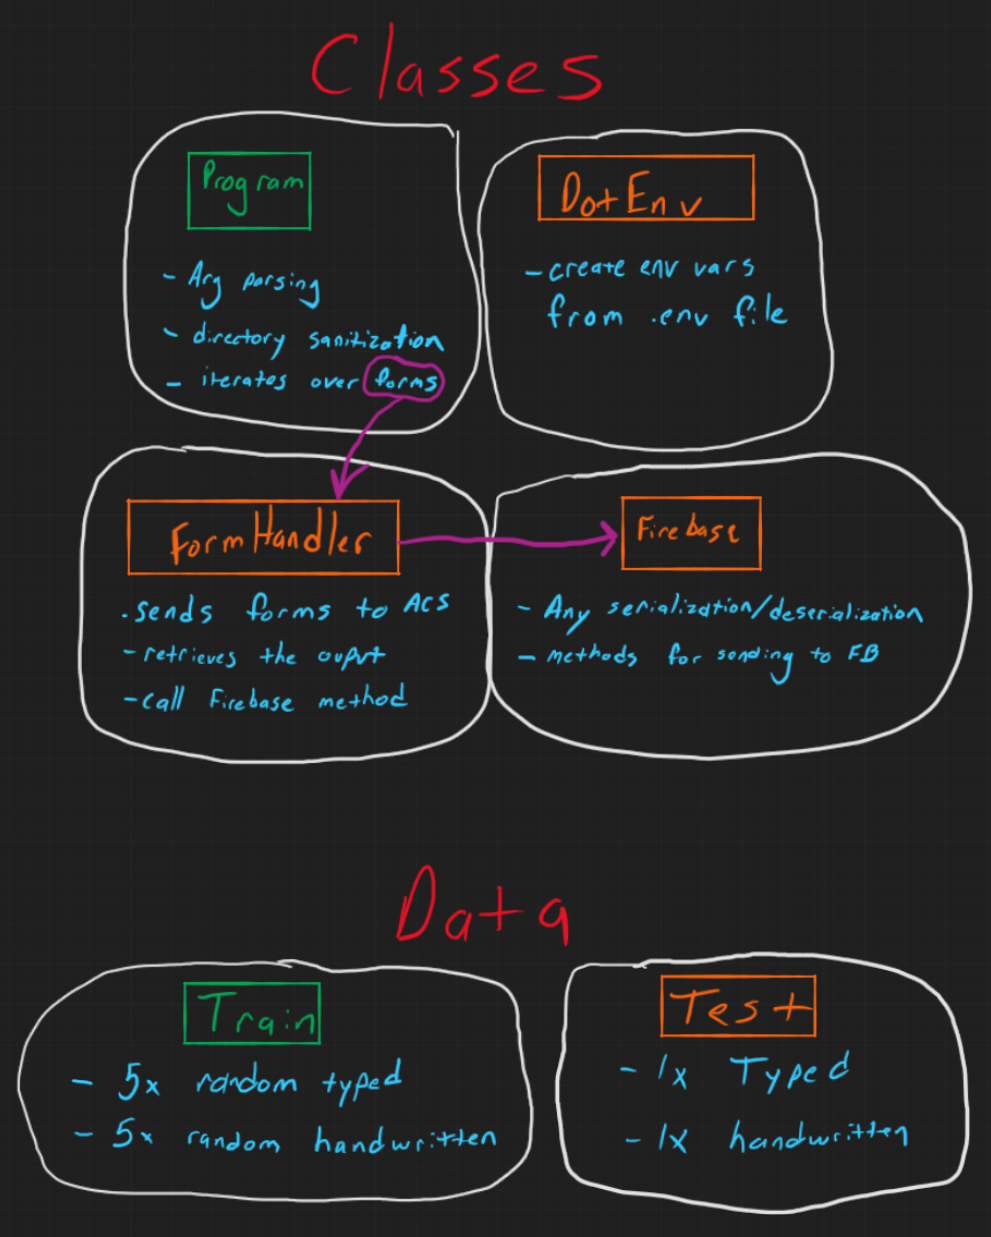 Classes
Program
- Arg parsing
- directory sanitization
- iterates over forms
DotEnv
- create env vars
from .env file
FormHandler
. sends forms to ACS
- retrieves the ouput
- call Firebase method
Firebase
- Any serialization/deserialization
- methods for sending to FB
Data
Train
- 5x random typed
- 5x random handwritten
Test
- 1x Typed
- 1x handwritten